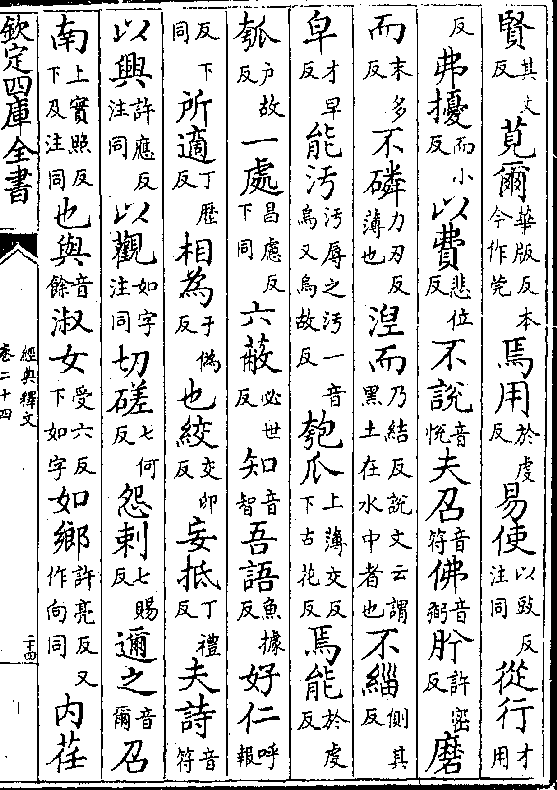 賢其丈反莧爾華版反本今作莞焉用於虔反易使以豉反注同從行才用
反弗擾而小反以費悲位反不説音悅夫召音符佛音弼肸許密反磨
而末多反不磷力刃反薄也涅而乃結反説文云謂黑土在水中者也不緇側其反
皁才早反能汚汚辱之汚一音烏又烏故反匏瓜上薄交反下古花反焉能於虔反
瓠户故反一處昌慮反下同六蔽必世反知音智吾語魚據反好仁呼報
反下同所適丁歴反相為于偽反也絞交卯反妄抵丁禮反夫詩音符
以興許應反注同以觀如字注同切磋七何反怨刺七賜反邇之音爾召
南上實照反下及注同也與音餘淑女受六反下如字如鄉許亮反又作向同內荏
欽定四庫全書
經典釋文
卷二十四
二十四